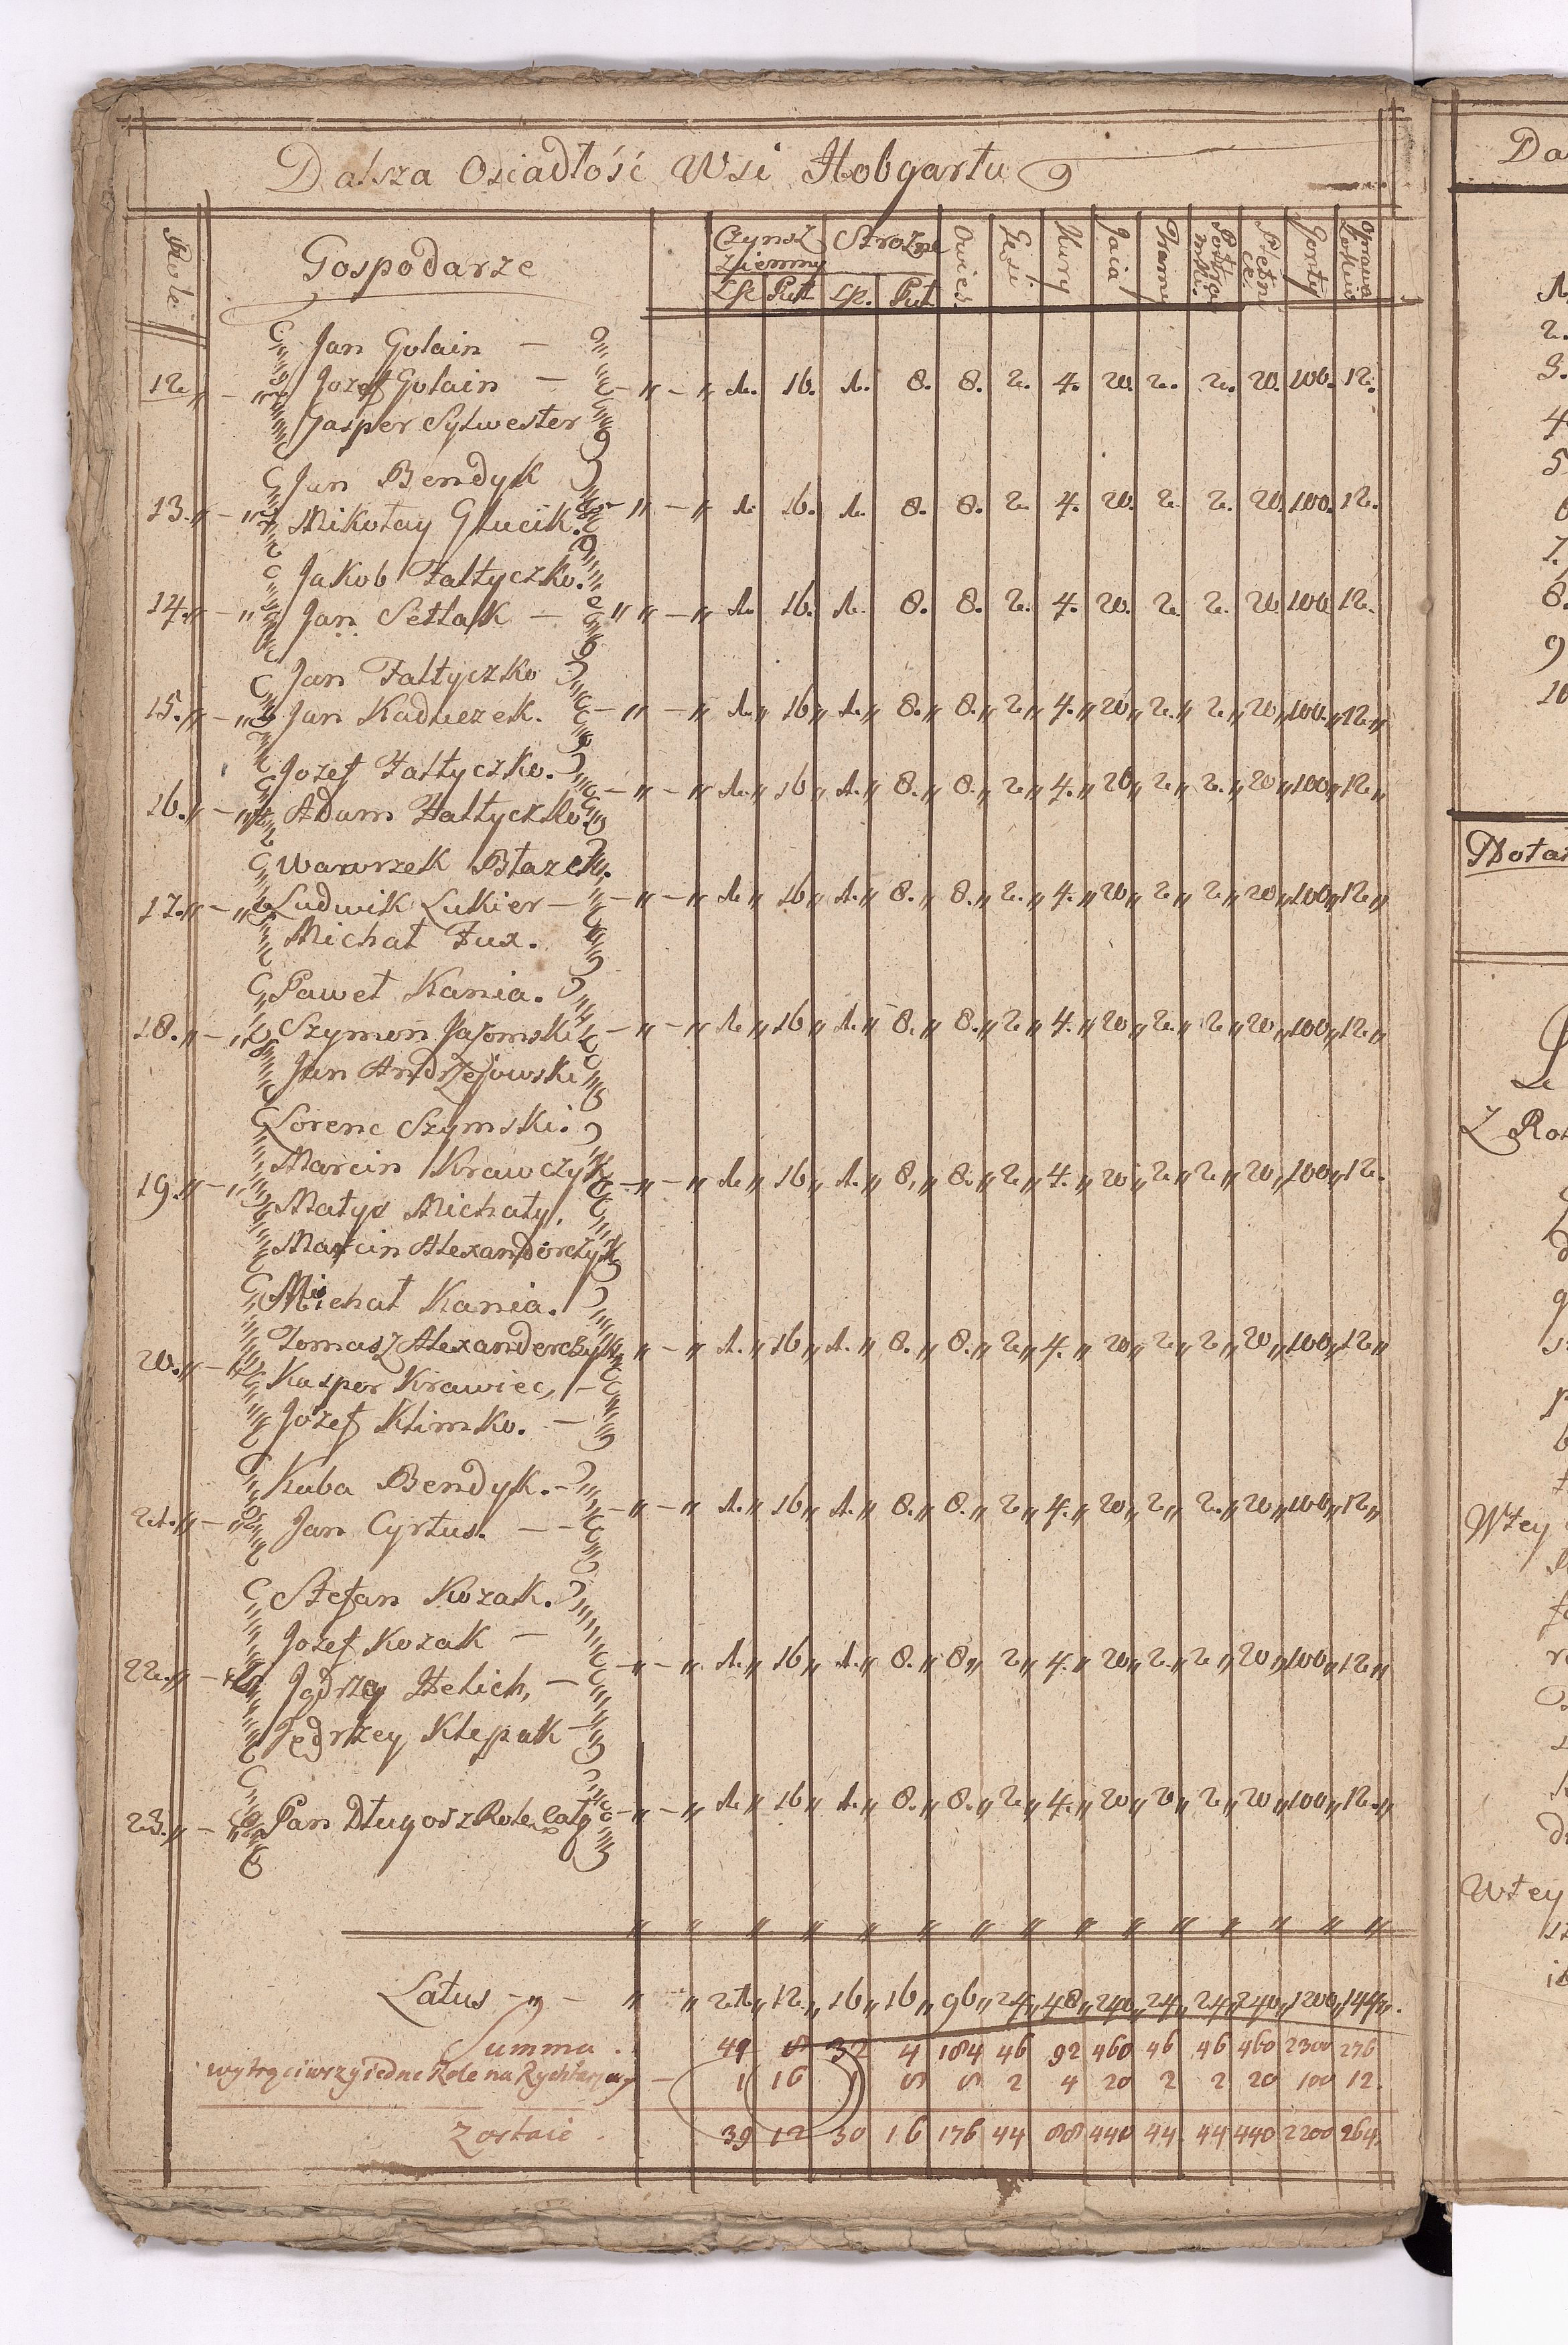 Dalsza Osiadłość Wsi Hobgartu
Role Gospodarze Czynsz Ziemny Strożne Owies Gęsi Kury Jaia Podstawki Gonty Oprawa
Zł Put Zł. Put
Jan Golain —
12 „ — „ Jozef Golain — „ — „ 1. 16. 1. 8. 8. 2. 4. 20. 2. 2. 20. 100. 12.
Gasper Sylwester
Jan Bendyk
13. „ — „ Mikołay Glucik. „ — „ 1. 16. 1. 8. 8. 2. 4. 20. 2. 2. 20. 100. 12.
Jakob Fałtyczko.
14. „ — „ Jan Setlak — „ „ — „ 1. 16. 1. 8. 8. 2. 4. 20. 2. 2. 20 100 12.
Jan Fałtyczko
15. „ — „ Jan Kaduczek. — „ — „ 1. „ 16 „ 1. „ 8. „ 8. „ 2 „ 4. „ 20 „ 2. „ 2 „ 20 „ 100. „ 12 „
Jozef Fałtyczko.
16. „ — „ Adam Fałtyczko — „ — „ 1. „ 16 „ 1. „ 8. „ 8. „ 2 „ 4. „ 20 „ 2 „ 2. „ 20 „ 100 „ 12 „
Wawrzek Błazek.
17. „ — „ Ludwik Lukier — „ — „ 1 „ 16 „ 1. „ 8. „ 8. „ 2. „ 4. „ 20 „ 2 „ 2 „ 20 „ 100 „ 12 „
Michał Fux.
Paweł Kania.
18. „ — „ Szymon Jaromski — „ — „ 1. „ 16 „ 1. „ 8. „ 8. „ 2 „ 4. „ 20 „ 2. „ 2 „ 20 „ 100 „ 12 „
Jan Andrzejowski
Lorenc Szymski.
Marcin Krawczyk
19. „ — „ — „ — „ 1. „ 16 „ 1. „ 8. „ 8. „ 2 „ 4. „ 20 „ 2 „ 2 „ 20 „ 100 „ 12.
Matys Michaly,
Marcin Alexanderczyk
Michał Kania.
Tomasz Alexanderczyk „ — „ 1. „ 16 „ 1. „ 8. „ 8. „ 2 „ 4. „ 20 „ 2 „ 2 „ 20 „ 100 „ 12 „
20. „ — Kasper Krawiec, —
Jozef Klimko. —
Kuba Bendyk. —
21. „ — „ Jan Cyrtus. — — „ — „ 1. „ 16 „ 1. „ 8. „ 8. „ 2 „ 4. „ 20 „ 2 „ 2. „ 20 „ 100 „ 12 „
Stefan Kozak.
Jozef Kozak —
22. „ — Jędrzey Helich, — — „ — „ 1. „ 16 „ 1. „ 8. „ 8 „ 2 „ 4. „ 20 „ 2. „ 2 „ 20 „ 100 „ 12 „
Jędrzey Klepak —
23. „ — „ Pan Długosz Role całą — „ — „ 1. „ 16 „ 1. „ 8. „ 8. „ 2 „ 4. „ 20 „ 2 „ 2 „ 20 „ 100 „ 12. „
Latus — „ — „ „ 21 „ 12 „ 16 „ 16 „ 96 „ 24 „ 48 „ 240 „ 24 „ 24 „ 240 „ 1200 „ 144 „.
Summa . 8 32 4 184 46 92 460 46 46 460 2300 276
wytrąciwszy iedne Role na Rychtarza — 1 16 1 8 8 2 4 20 2 2 20 100 12.
Zostaie . 39 12 30 16 176 44 88 440 44 44 440 2200 264.
Da
1.
2.
3.
4
5
6
7.
8.
9
10
Nota
Z Rol
Wtey
Wtey